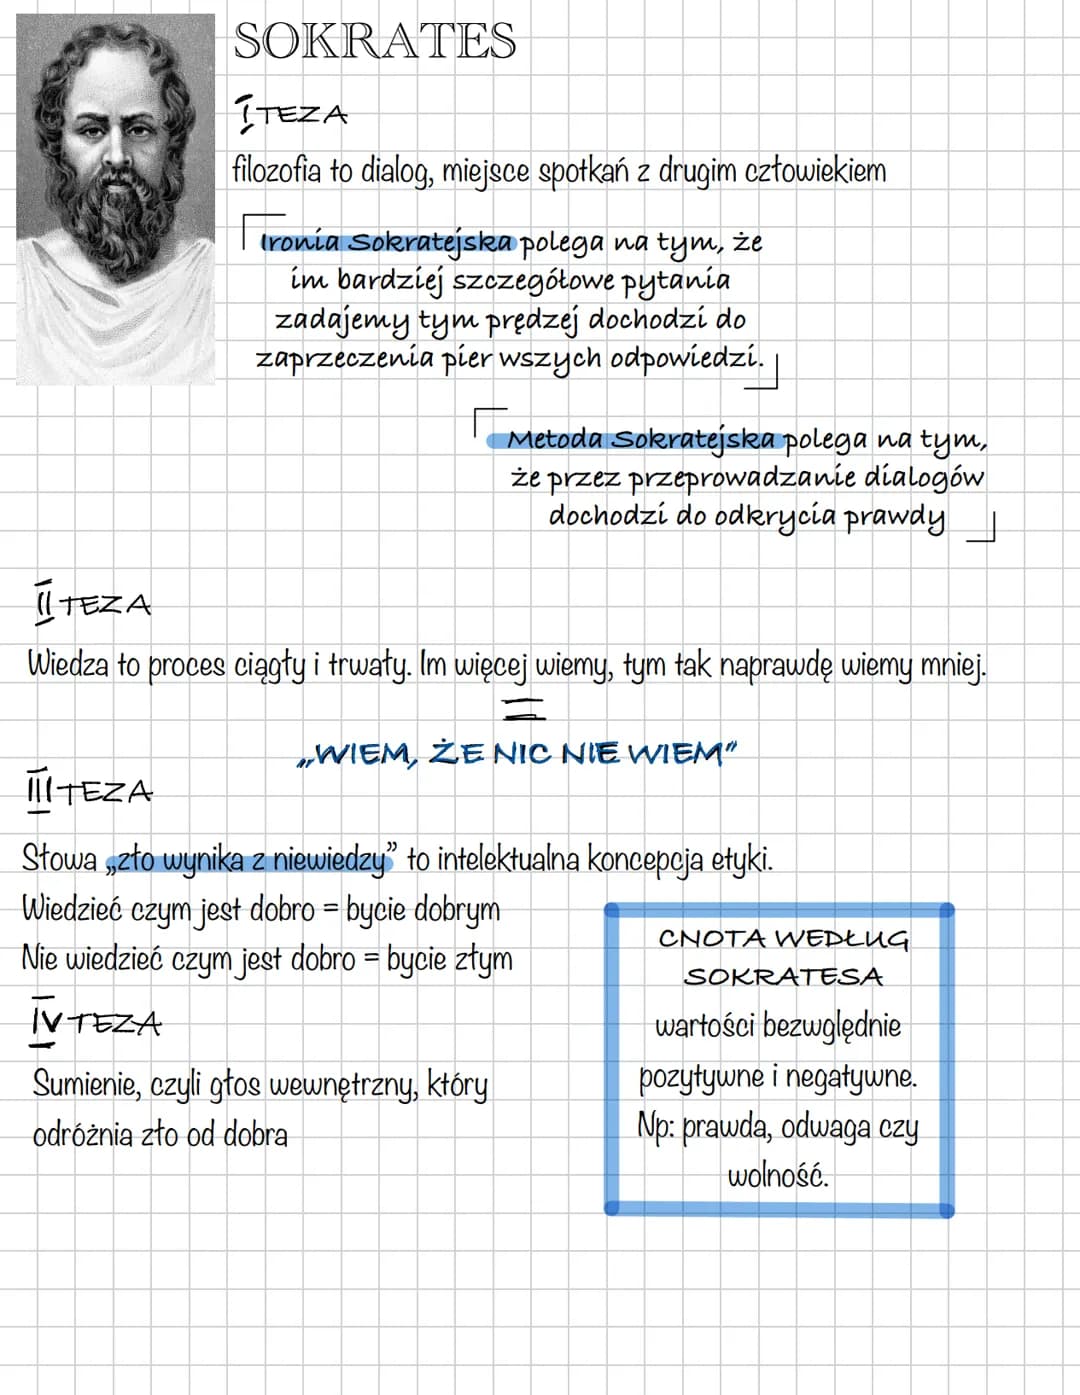 SOKRATES
I TEZA
filozofia to dialog, miejsce spotkań z drugim człowiekiem
Ironia Sokratejska polega na tym, że
im bardziej szczegółowe pytania
zadajemy tym prędzej dochodzi do
zaprzeczenia pier wszych odpowiedzi.
Metoda Sokratejska polega na tym,
że przez przeprowadzanie dialogów
dochodzi do odkrycia prawdy
II TEZA
Wiedza to proces ciągły i trwały. Im więcej wiemy, tym tak naprawdę wiemy mniej.
=
„WIEM, ŻE NIC NIE WIEM”
III TEZA
Słowa „zło wynika z niewiedzy” to intelektualna koncepcja etyki.
Wiedzieć czym jest dobro = bycie dobrym
Nie wiedzieć czym jest dobro = bycie złym
IV TEZA
Sumienie, czyli głos wewnętrzny, który
odróżnia zło od dobra
CNOTA WEDŁUG
SOKRATESA
wartości bezwględnie
pozytywne i negatywne.
Np: prawda, odwaga czy
wolność.